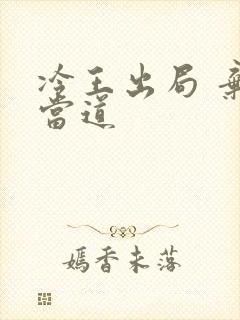 冷王出局 棄
當道
嫣香未落